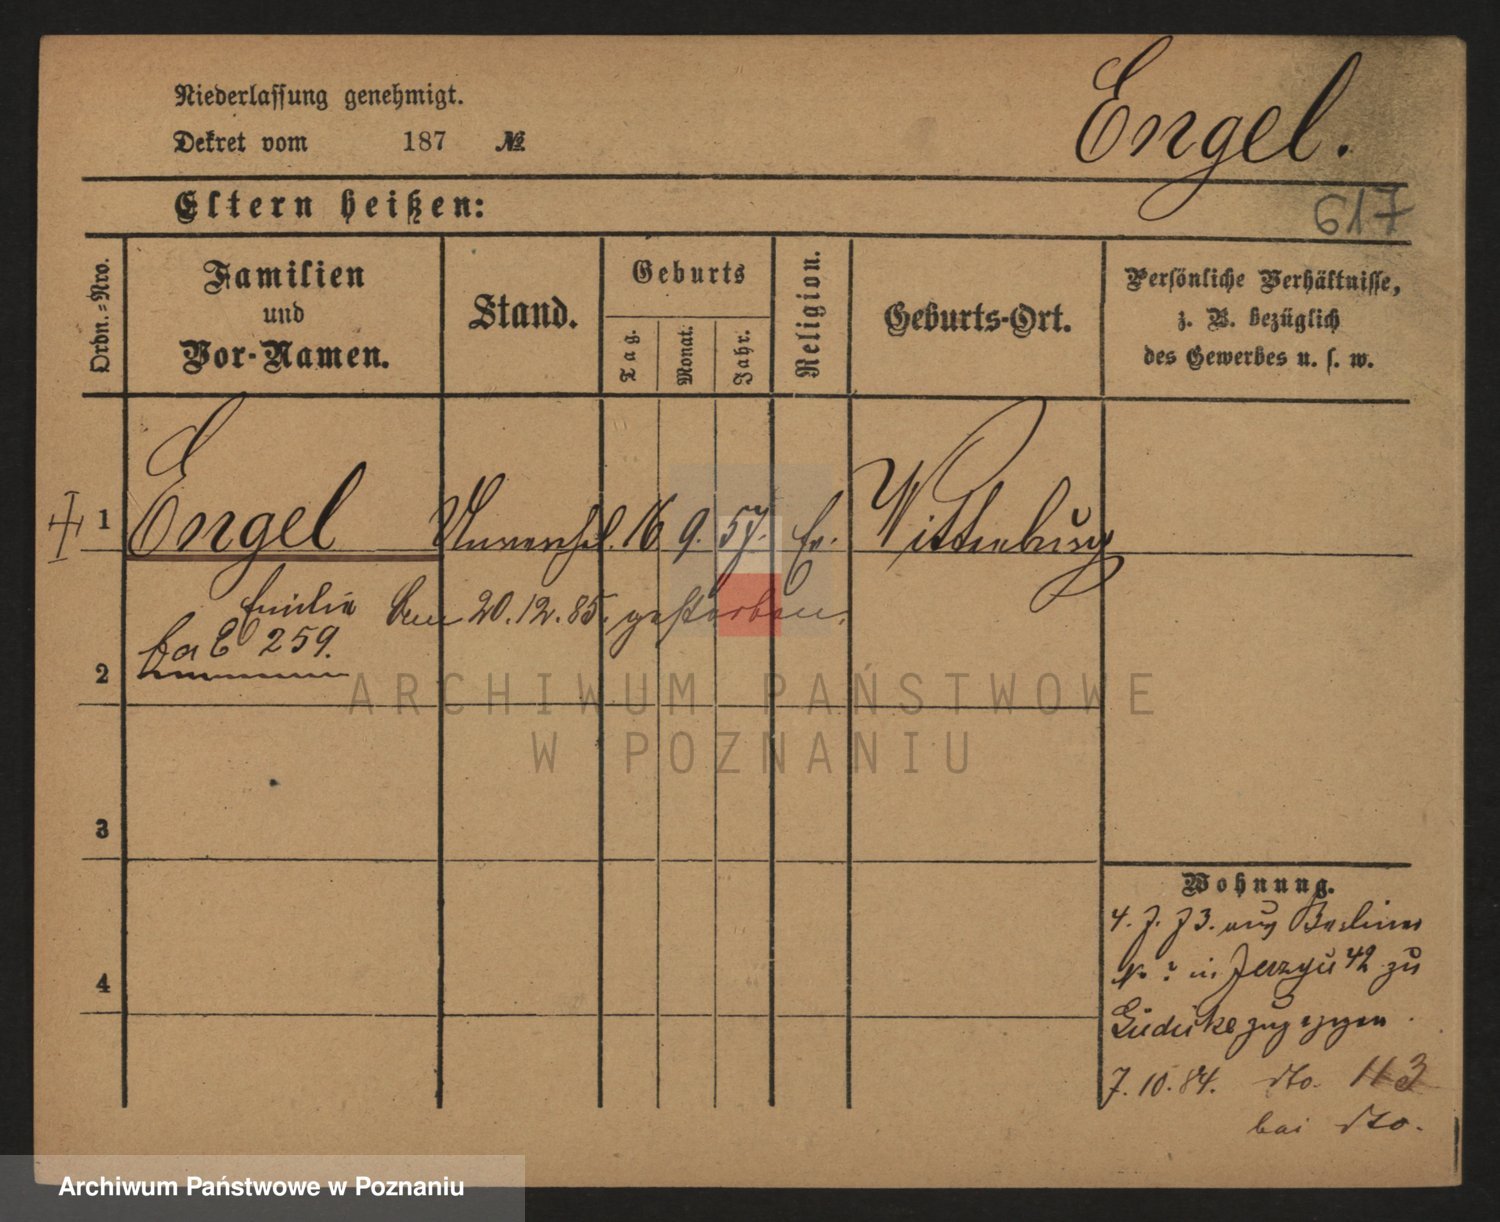 Niederlassung genehmigt.
Engel.
Dekret vom 187 №
Eltern heißen:
617
Ordn.-Nro.
Familien
und
Vor-Namen.
Stand.
Geburts
Tag.
Monat.
Jahr.
Religion.
Geburts-Ort.
Persönliche Verhältnisse,
z. B. bezüglich
des Gewerbes u. s. w.
1 Engel Unverehel. 16 9. 57. Ev. Wittenburg
Emilie Am 20.12.85. gestorben.
E 259.
2
3
4
Wohnung.
4. 7. 73. aus Berliner
No ? in 42 zu
7.10.84. dto. 113
bei dto.
ARCHIWUM PAŃSTWOWE
W POZNANIU
Archiwum Państwowe w Poznaniu